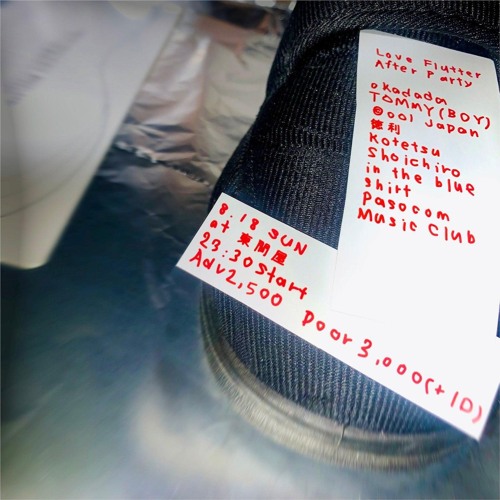 Love Flutter
After Party
okadada
TOMMY(BOY)
@ool Japan
徳利
Kotetsu
Shoichiro
in the blue
shirt
Pasocom
Music Club
8.18 SUN
at 東間屋
23:30 Start
Adv2,500 Door3,000(+1D)